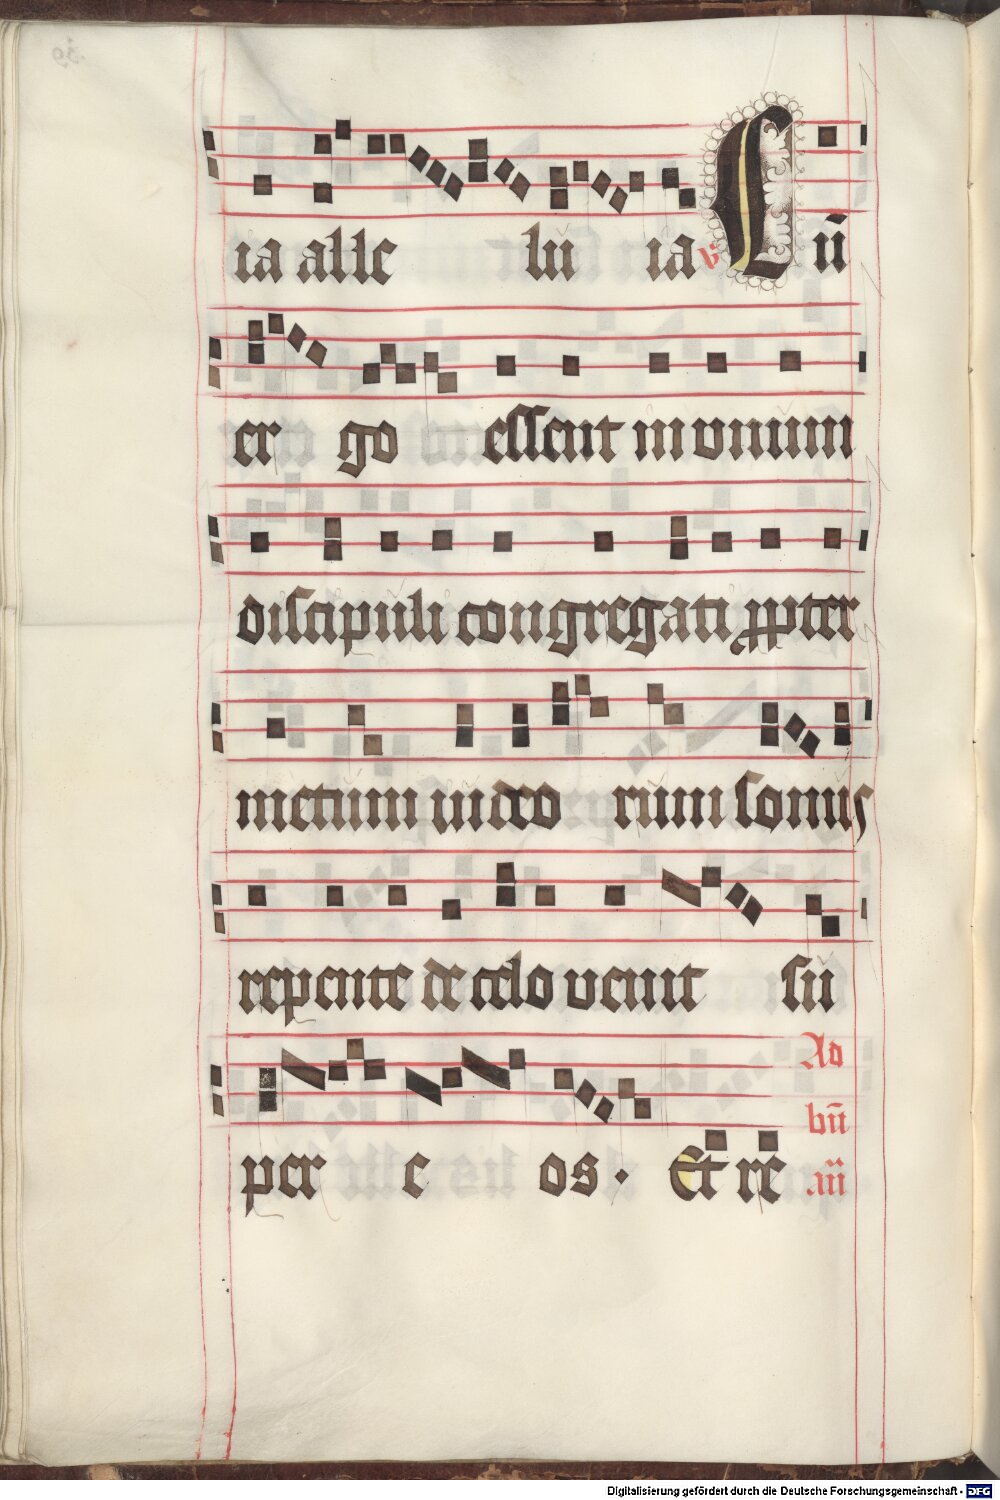 ia alle lu ia v Cū
er go essent in unum
discipuli congregati ꝓpter
metum iudeo rum sonus
repente de celo venit su
per e os. Et re
Ad
bn̄
an̄
Digitalisierung gefördert durch die Deutsche Forschungsgemeinschaft - DFG